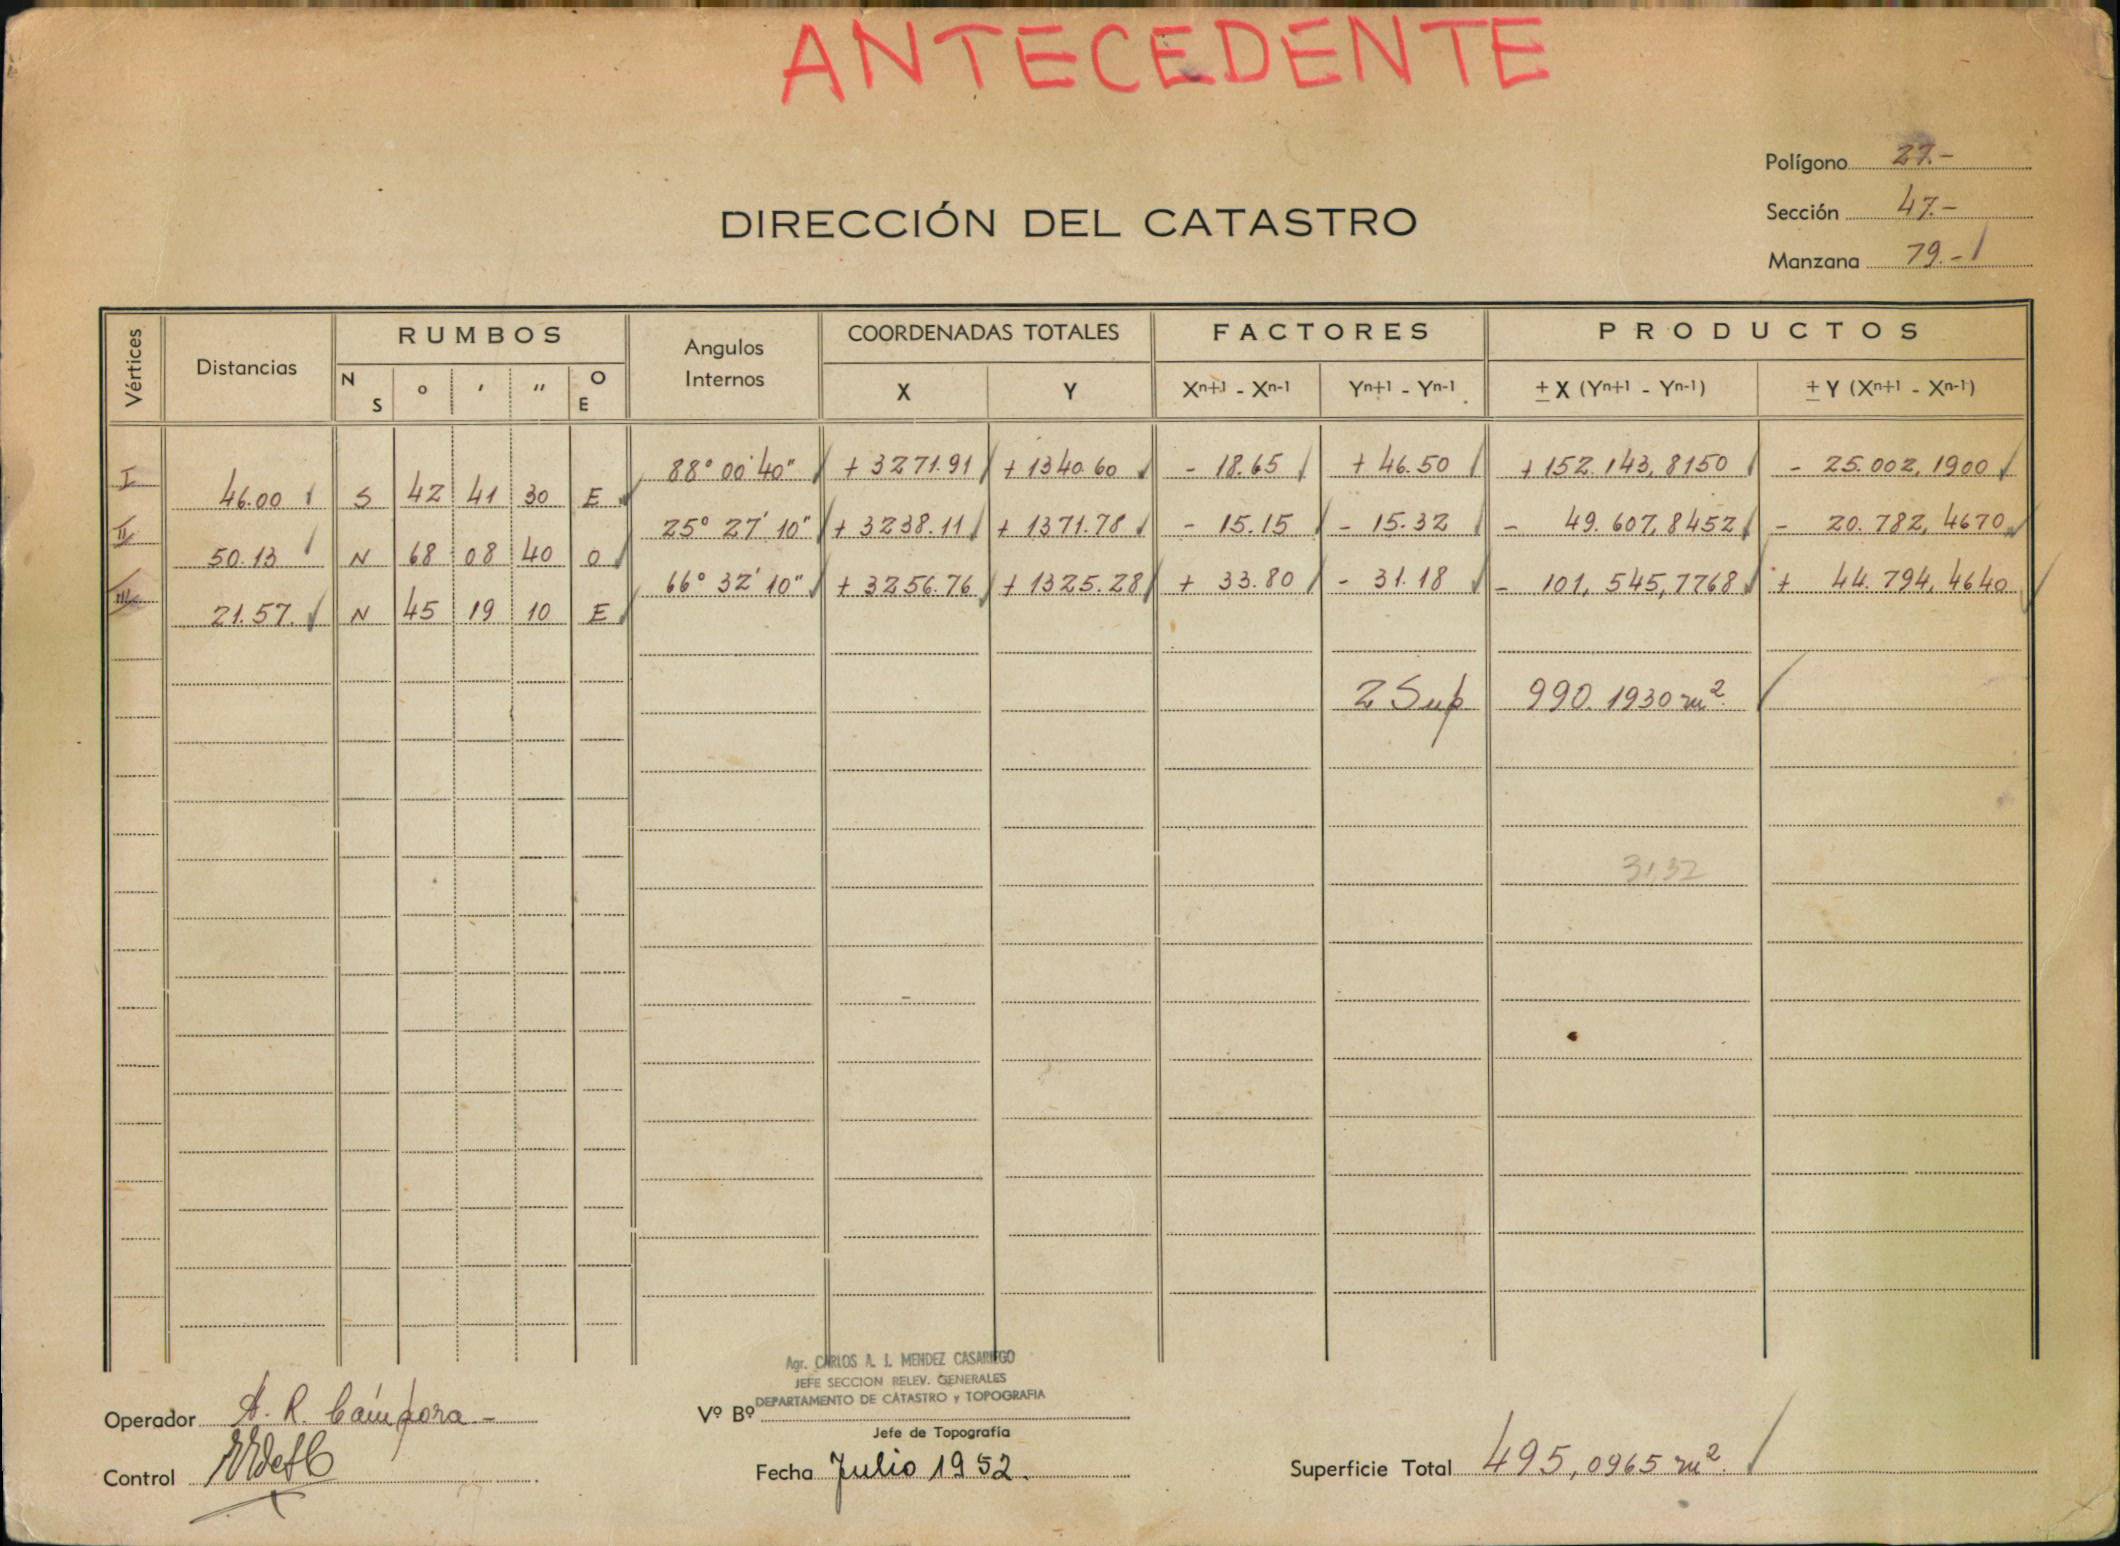 ANTECEDENTE
Polígono 27.-
Sección 47.-
Manzana 79.-
DIRECCIÓN DEL CATASTRO
Vértices Distancias RUMBOS Angulos Internos COORDENADAS TOTALES FACTORES PRODUCTOS
N S ° ' " O E X Y Xn+1 - Xn-1 Yn+1 - Yn-1 ± X (Yn+1 - Yn-1) ± Y (Xn+1 - Xn-1)
I 88° 00' 40" + 3271.91 + 1340.60 - 18.65 + 46.50 + 152.143,8150 - 25.002,1900
46.00 S 42 41 30 E
II 25° 27' 10" + 3238.11 + 1371.78 - 15.15 - 15.32 - 49.607,8452 - 20.782,4670
50.13 N 68 08 40 O
III 66° 32' 10" + 3256.76 + 1325.28 + 33.80 - 31.18 - 101,545,7768 + 44.794,4640
21.57. N 45 19 10 E
2 Sup 990.1930 m².
31,32
Agr. CARLOS A. J. MENDEZ CASARIEGO
JEFE SECCION RELEV. GENERALES
DEPARTAMENTO DE CATASTRO y TOPOGRAFIA
Operador A. R. Cámpora -
Vº Bº
Jefe de Topografía
Control
Fecha Julio 1952.
Superficie Total 495,0965 m².